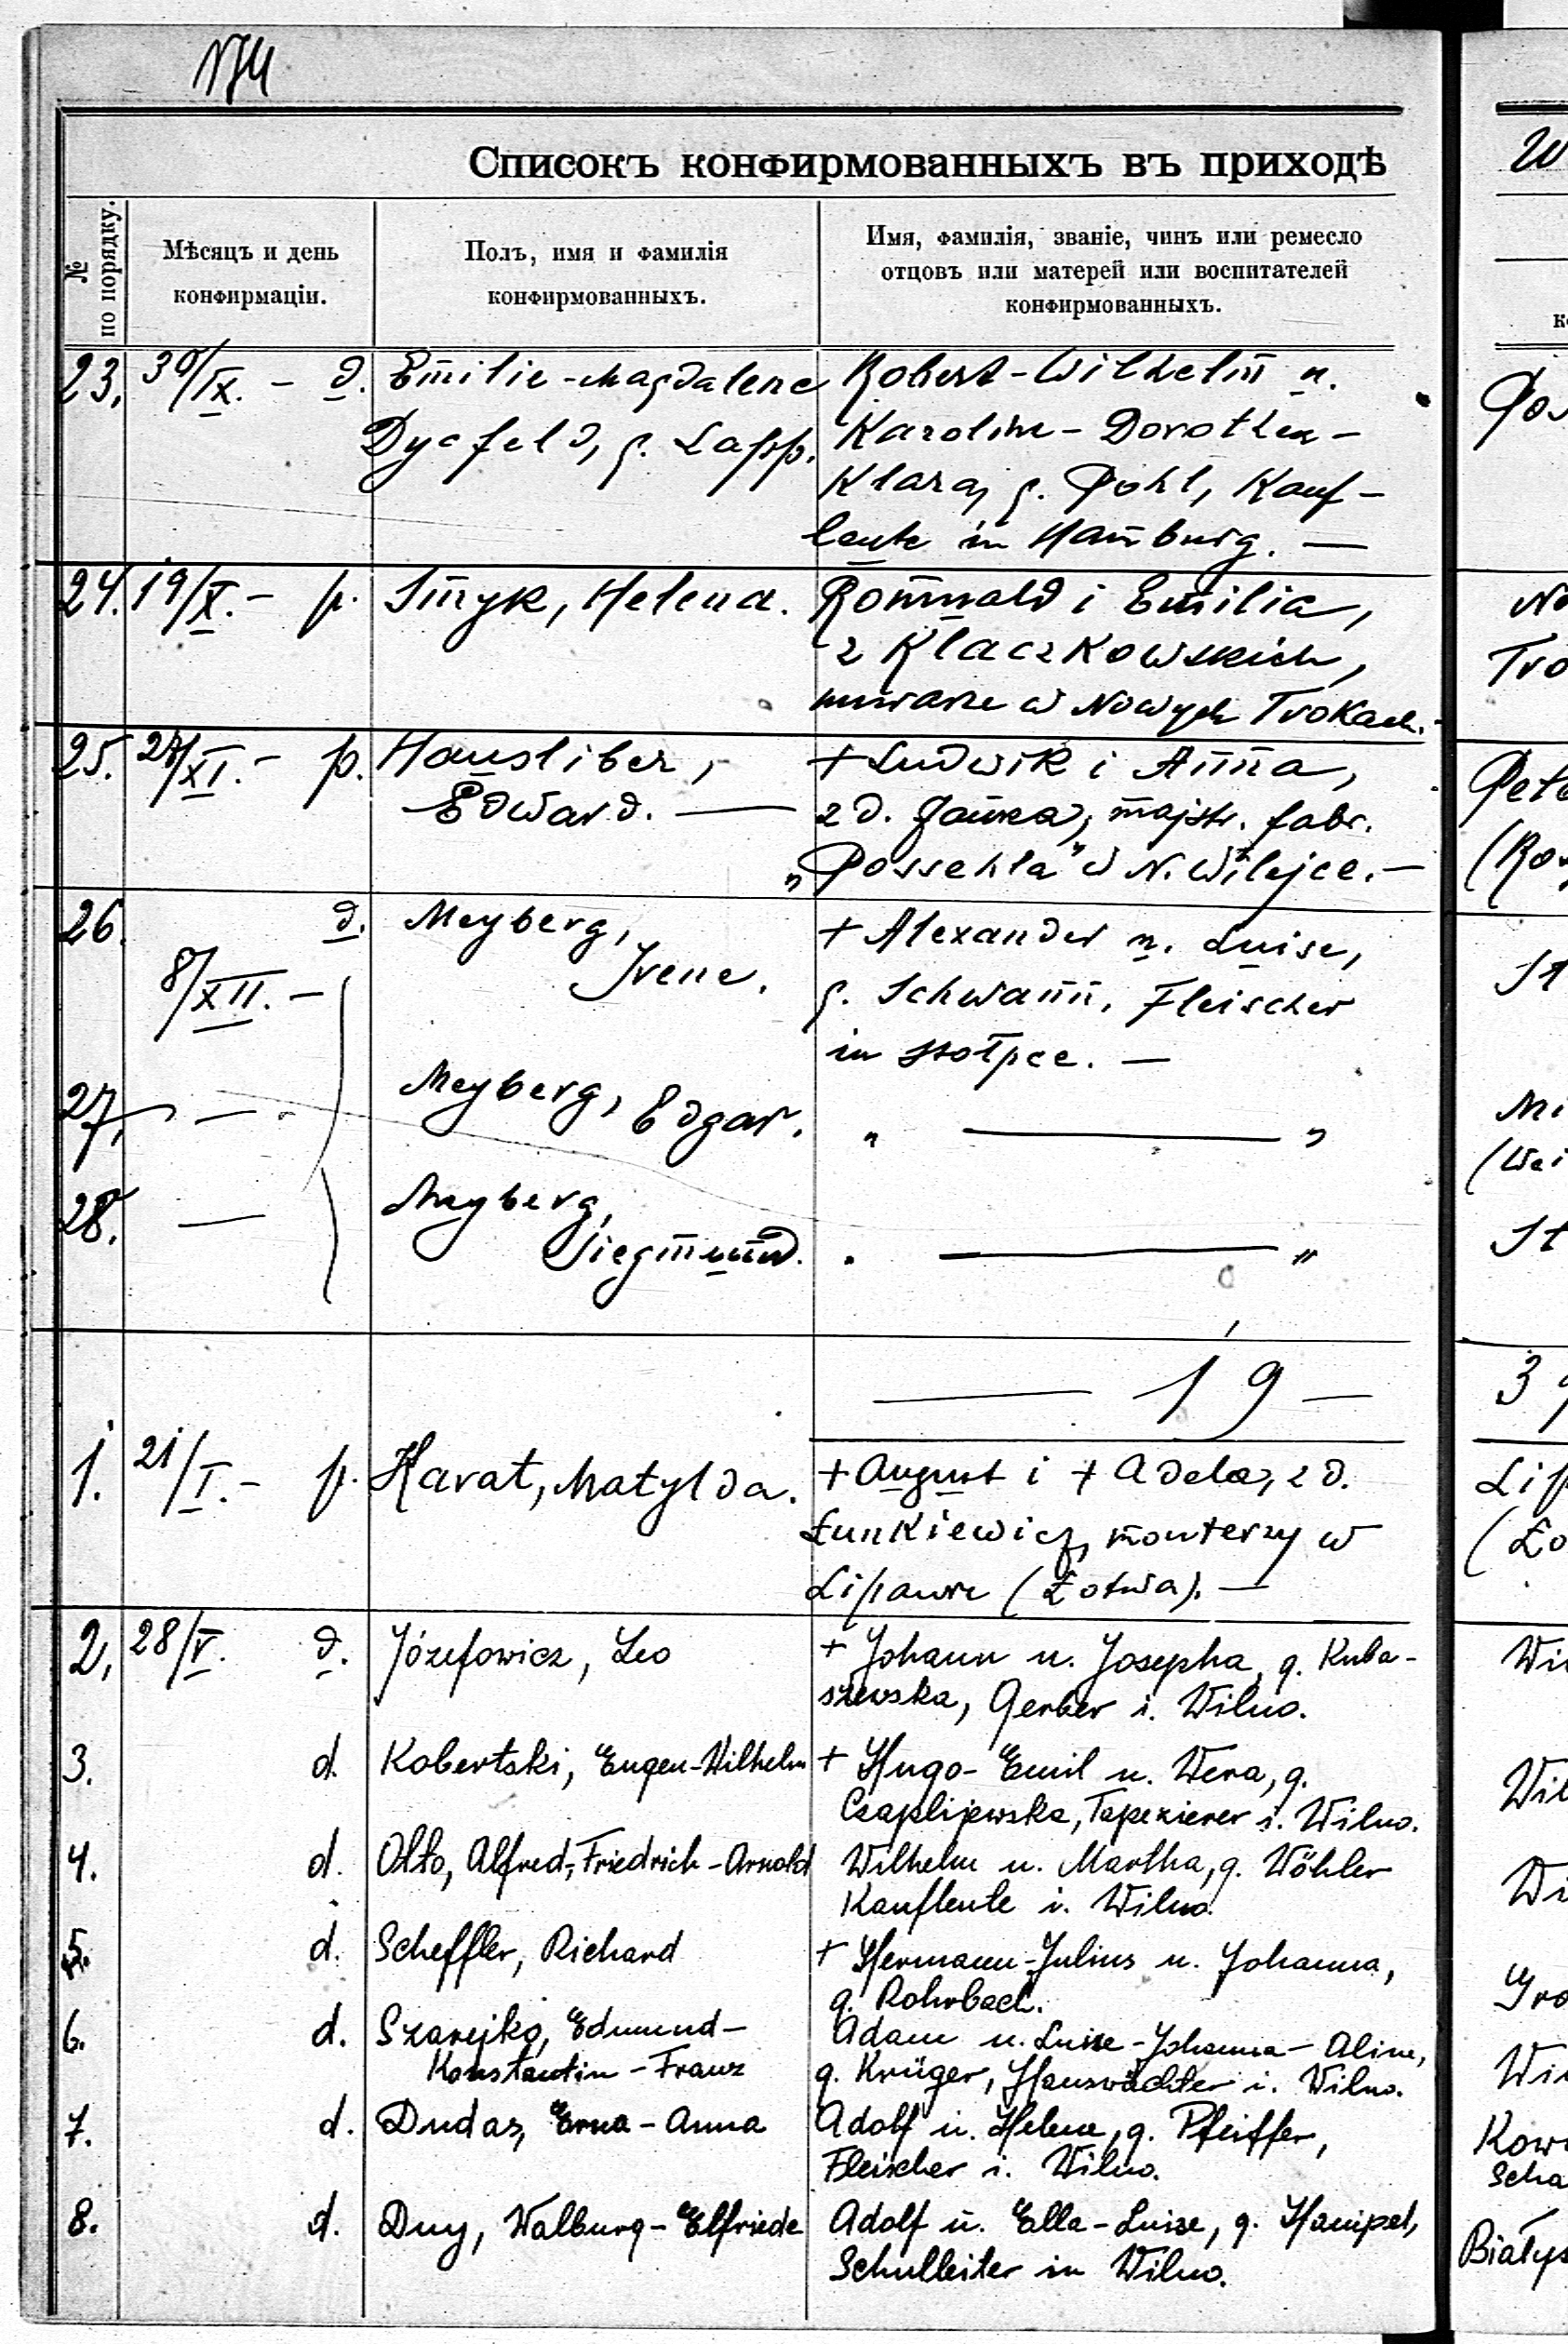 174
Списокъ конфирмованныхъ въ приходѣ
№ по порядку.
Мѣсяцъ и день конфирмаціи.
Полъ, имя и фамилія конфирмованныхъ.
Имя, фамилія, званіе, чинъ или ремесло отцовъ или матерей или воспитателей конфирмованныхъ.
23. 30/IX. - d. Emilie-Magdalene Robert-Wilhelm u.
Dycfeld, g. Lapp. Karoline-Dorothea-
Klara, g. Pohl, Kauf-
leute in Hamburg. —
24. 19/X. - p. Smyk, Helena. Romuald i Emilia,
z Klaczkowskich,
murarze w Nowych Trokach.
25. 27/XI. - p. Hausliber, + Ludwik i Anna,
Edward. — z d. Janka, majstr. fabr.
"Possehla" w N. Wilejce. —
26. d. Meyberg, + Alexander u. Luise,
8/XII. - Irene. g. Schwann, Fleischer
in Stołpce. —
27. — Meyberg, Edgar. " — "
28. — Meyberg,
Siegmund. " — "
— 19 — 3
1. 21/I. - p. Harat, Matylda. + August i + Adela, z d.
Łunkiewicz, monterzy w
Lipawie (Łotwa). —
2. 28/V. d. Józefowicz, Leo + Johann u. Josepha, g. Kuba-
szewska, Gerber i. Wilno.
3. d. Kobertski, Eugen-Wilhelm + Hugo-Emil u. Wera, g.
Czaplijewska, Tapezierer i. Wilno.
4. d. Otto, Alfred-Friedrich-Arnold Wilhelm u. Martha, g. Wöhler
Kaufleute i. Wilno.
5. d. Scheffler, Richard + Hermann-Julius u. Johanna,
g. Rohrbach.
6. d. Szarejko, Edmund- Adam u. Luise-Johanna-Aline,
Konstantin-Franz g. Krüger, Hauswächter i. Wilno.
7. d. Dudas, Erna-Anna Adolf u. Helene, g. Pfeiffer,
Fleischer i. Wilno.
8. d. Duy, Walburg-Elfriede Adolf u. Ella-Luise, g. Hampel,
Schulleiter in Wilno.